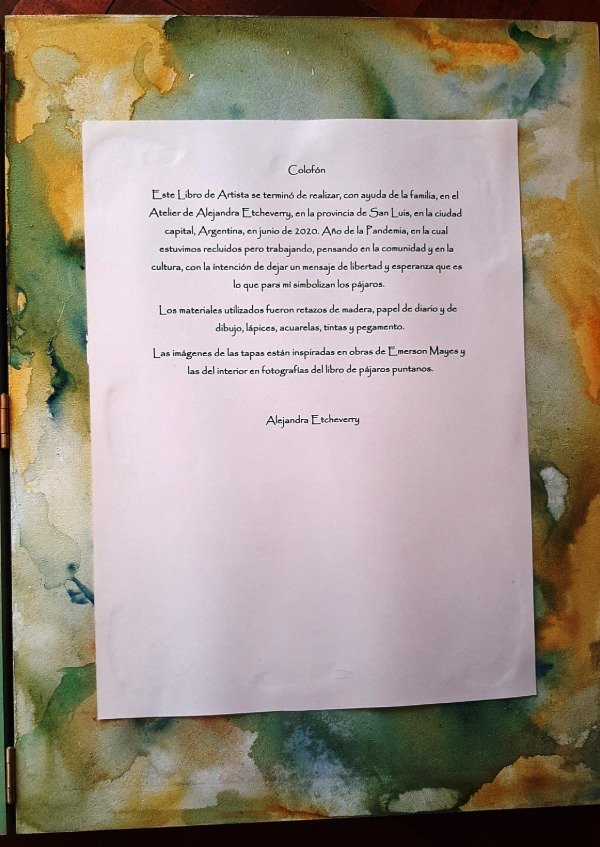 Colofón
Este Libro de Artista se terminó de realizar, con ayuda de la familia, en el
Atelier de Alejandra Etcheverry, en la provincia de San Luis, en la ciudad
capital, Argentina, en junio de 2020. Año de la Pandemia, en la cual
estuvimos recluidos pero trabajando, pensando en la comunidad y en la
cultura, con la intención de dejar un mensaje de libertad y esperanza que es
lo que para mí simbolizan los pájaros.
Los materiales utilizados fueron retazos de madera, papel de diario y de
dibujo, lápices, acuarelas, tintas y pegamento.
Las imágenes de las tapas están inspiradas en obras de Emerson Mayes y
las del interior en fotografías del libro de pájaros puntanos.
Alejandra Etcheverry